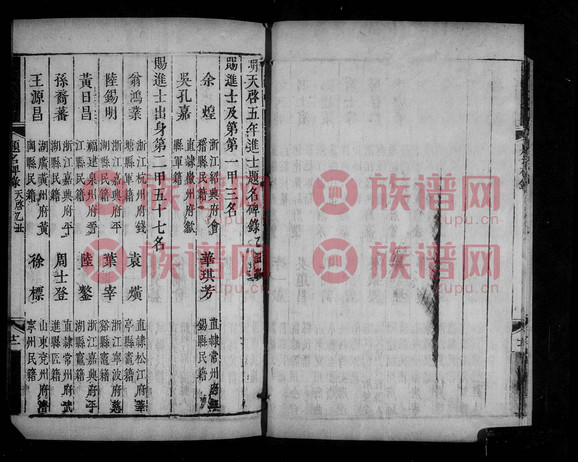 明天啓五年進士題名碑錄乙丑科
賜進士及第第一甲三名
余煌 浙江紹興府會稽縣民籍
華琪芳 直隸常州府無錫縣民籍
吳孔嘉 直隸徽州府歙縣軍籍
賜進士出身第二甲五十七名
翁鴻業 浙江杭州府錢塘縣軍籍
袁熿 直隸松江府華亭縣竈籍
陸錫明 浙江嘉興府平湖縣民籍
葉宰 浙江寧波府慈谿縣竈籍
黃日昌 福建泉州府晉江縣民籍
陸鏊 浙江嘉興府平湖縣竈籍
孫裔蕃 浙江嘉興府平湖縣民籍
周士登 直隸常州府武進縣匠籍
王源昌 湖廣黃州府黃岡縣民籍
徐標 山東兗州府濟寧州民籍
題名碑錄 天啓乙丑
十一
族谱网
zupu.cn
族谱网
zupu.cn
族谱网
zupu.cn
族谱网
zupu.cn